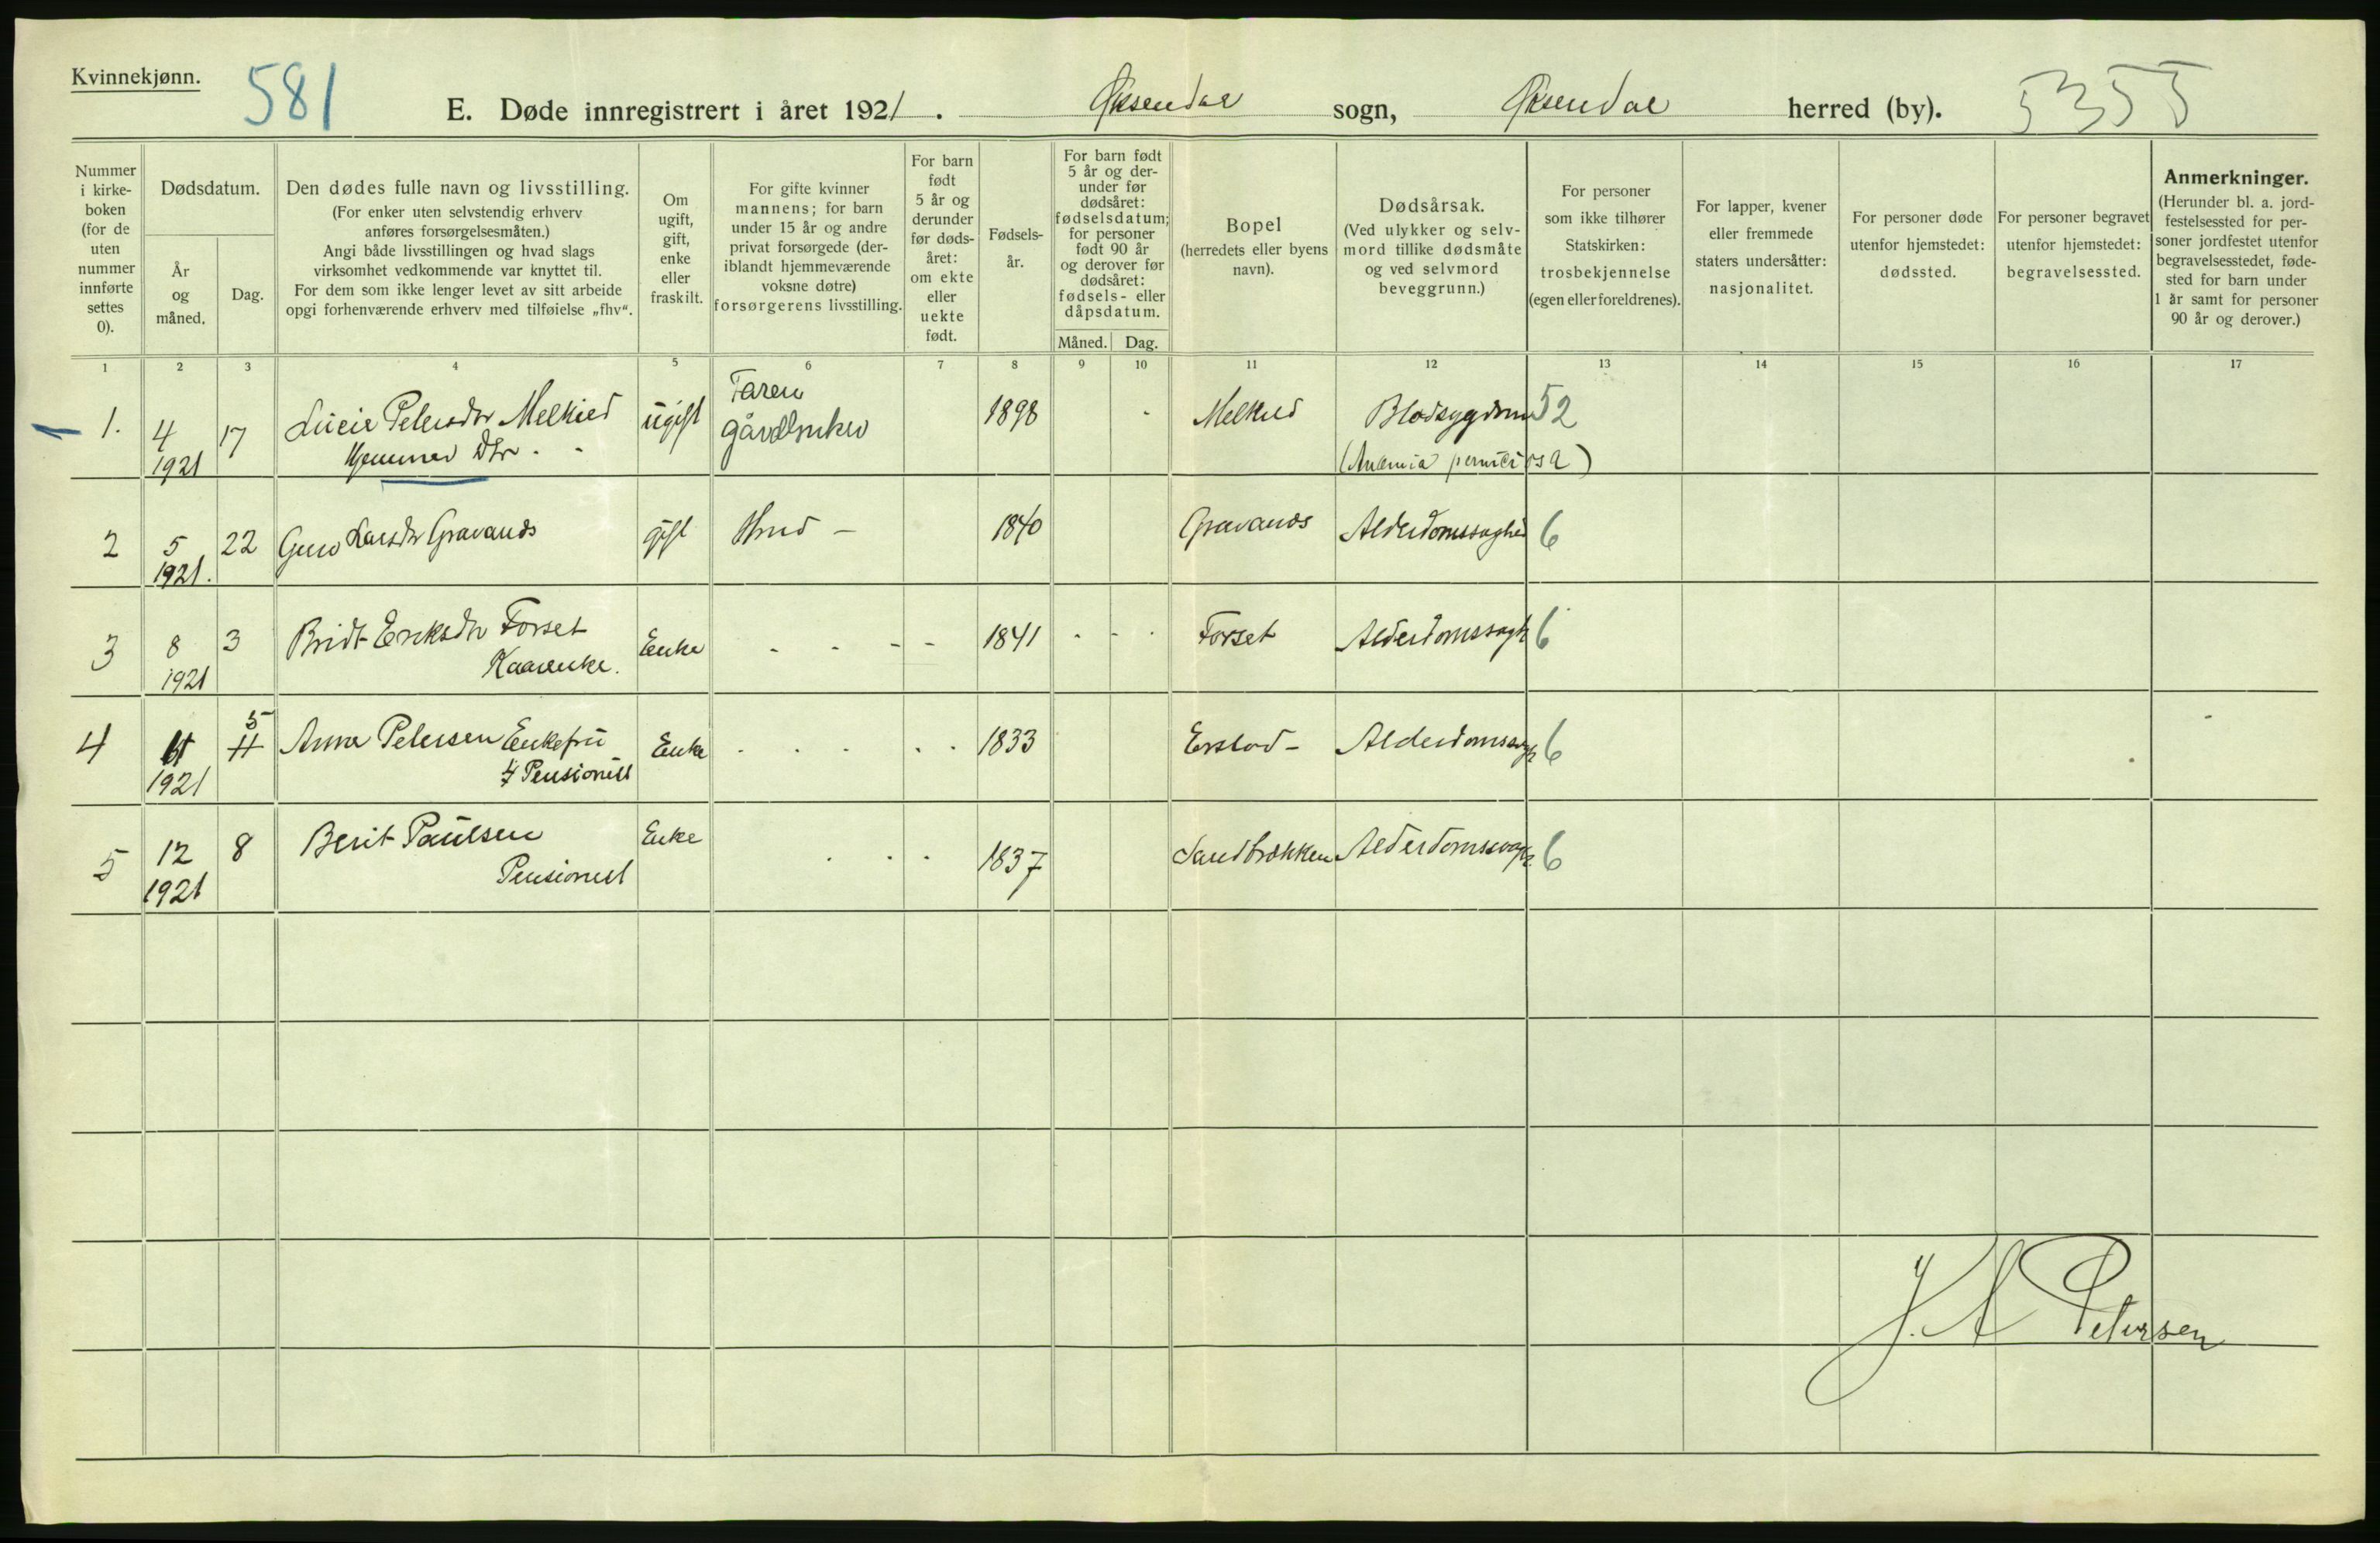 Kvinnekjønn.
581
E. Døde innregistrert i året 1921. Øksendal sogn, Øksendal herred (by). 5355
Nummer i kirkeboken (for de uten nummer innførte settes 0).
Dødsdatum.
År og måned.
Dag.
Den dødes fulle navn og livsstilling.
(For enker uten selvstendig erhverv
anføres forsørgelsesmåten.)
Angi både livsstillingen og hvad slags
virksomhet vedkommende var knyttet til.
For dem som ikke lenger levet av sitt arbeide
opgi forhenværende erhverv med tilføielse „fhv“.
Om
ugift,
gift,
enke
eller
fraskilt.
For gifte kvinner
mannens; for barn
under 15 år og andre
privat forsørgede (der-
iblandt hjemmeværende
voksne døtre)
forsørgerens livsstilling.
For barn
født
5 år og
derunder
før døds-
året:
om ekte
eller
uekte
født.
Fødsels-
år.
For barn født
5 år og der-
under før
dødsåret:
fødselsdatum;
for personer
født 90 år
og derover før
dødsåret:
fødsels- eller
dåpsdatum.
Måned. Dag.
Bopel
(herredets eller byens
navn).
Dødsårsak.
(Ved ulykker og selv-
mord tillike dødsmåte
og ved selvmord
beveggrunn.)
For personer
som ikke tilhører
Statskirken:
trosbekjennelse
(egen eller foreldrenes).
For lapper, kvener
eller fremmede
staters undersåtter:
nasjonalitet.
For personer døde
utenfor hjemstedet:
dødssted.
For personer begravet
utenfor hjemstedet:
begravelsessted.
Anmerkninger.
(Herunder bl. a. jord-
festelsessted for per-
soner jordfestet utenfor
begravelsesstedet, føde-
sted for barn under
1 år samt for personer
90 år og derover.)
1 2 3 4 5 6 7 8 9 10 11 12 13 14 15 16 17
1. 4 1921 17 Lucie Petersdtr Melkild ugift Faren gårdbruker 1898 Blodsygdom 52
(Anæmia perniciosa)
2 5 1921. 22 Guro Larsdtr Gravands gift 1840 Gravands Alderdomssvaghed 6
3 8 1921 3 Bridt Eriksdtr Forset Kaarenke. Enke 1841 Forset Alderdomssvagh 6
4 11 1921 5 Anna Petersen Enkefru Pensionist Enke 1833 Alderdomssvagh 6
5 12 1921 8 Berit Paulsen Pensionist Enke 1837 Sandbrækken Alderdomssvagh. 6
J. A Petersen